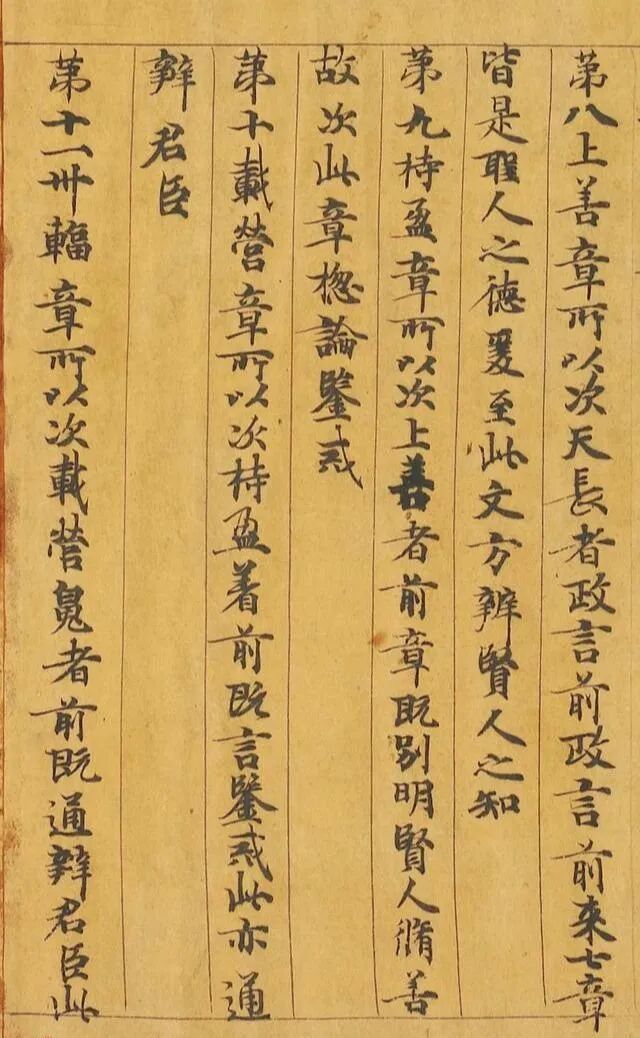 第八上善章所以次天長者政言前政言前来七章
皆是聖人之徳爰至此文方辨賢人之知
第九持盈章所以次上善者前章既別明賢人脩善
故次此章惣論鑒戒
第十載營章所以次持盈着前既言鑒戒此亦通
辨君臣
第十一卅輻章所以次載營鬼者前既通辨君臣此